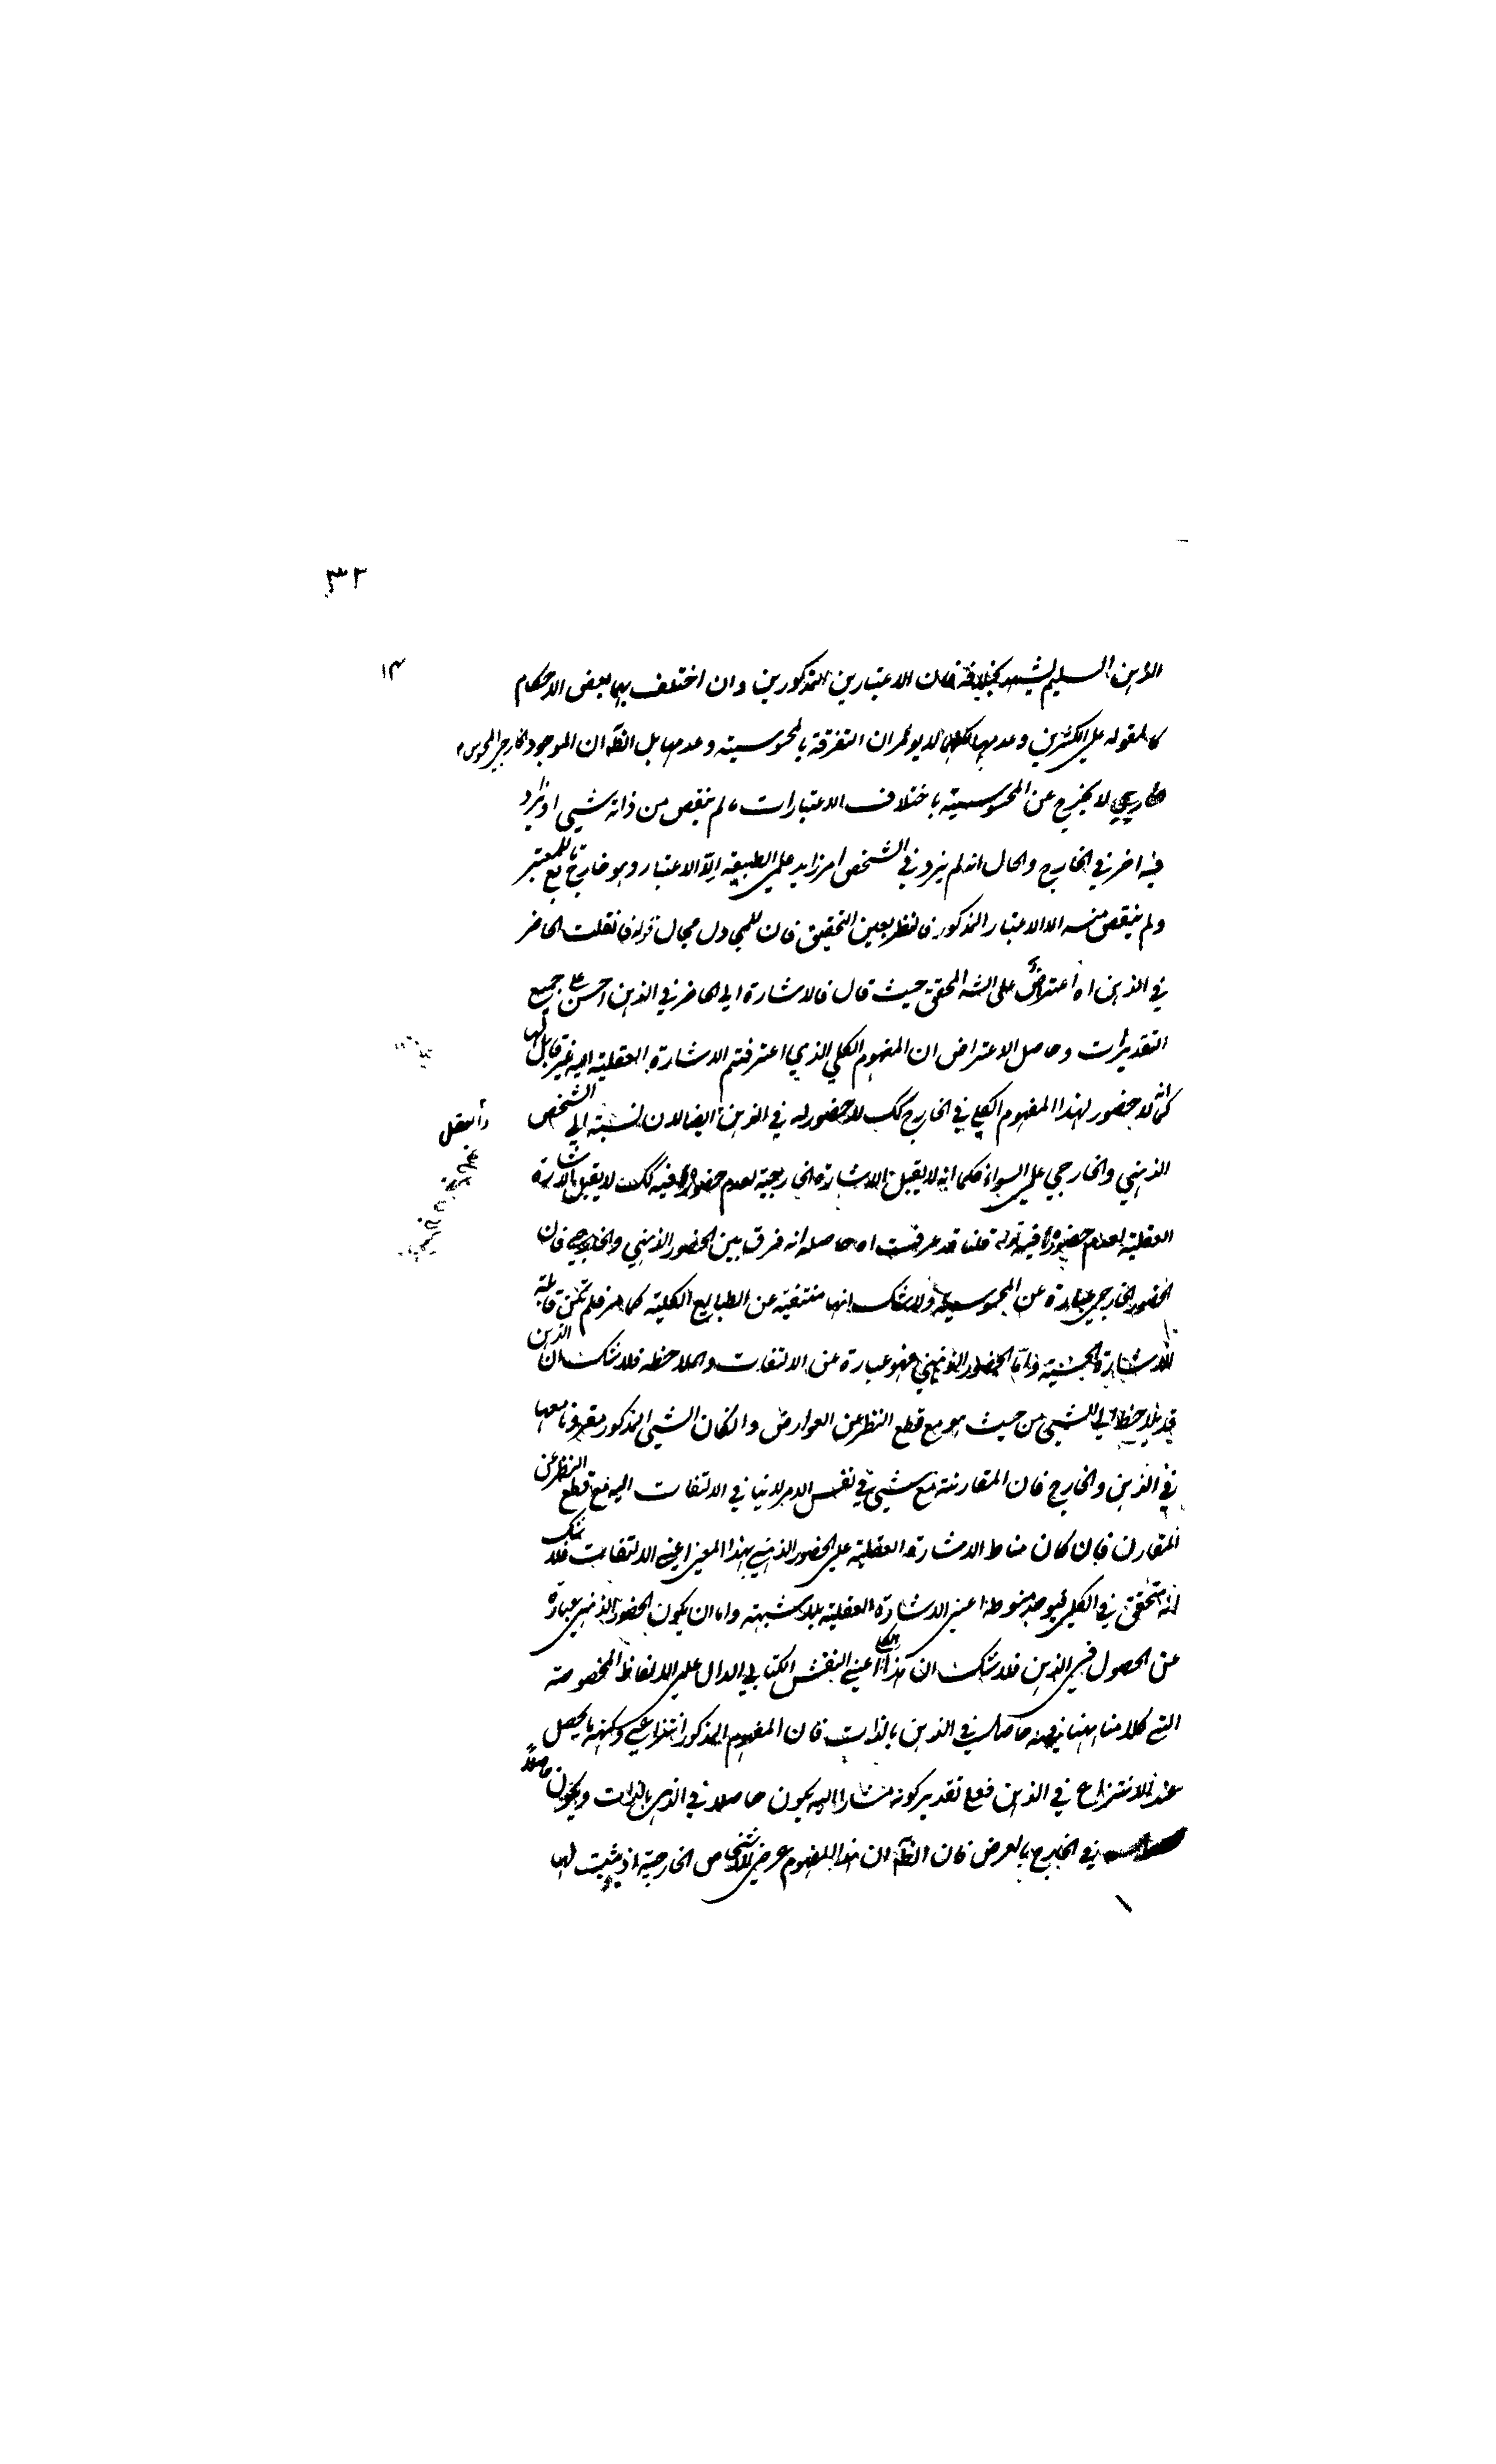 ٣٢
١٣
الذهن السليم يشهد بخلافه فان الاعتبارين المذكورين وان اختلف بهما بعض الاحكام
كالمقوله على الكثيرين وعدمها لكنهما لا يوثران التفرقة بالمحسوسية وعدمها بل الظ ان الموجود الخارجي المحسوس
لا يخرج عن المحسوسية باختلاف الاعتبارات ما لم ينقص من ذاته شيى او يزد
فيه اخر في الخارج والحال انه لم يزد في الشخص امر زايد على الطبيعة الا الاعتبار وهو خارج تابع للمعتبر
ولم ينقص منه الا الاعتبار المذكور فانظر بعين التحقيق فان للمجادل مجال قوله فان قلت الحاضر
في الذهن اه اعتراض على الشه المحقق حيث قال فالاشارة الى الحاضر في الذهن احسن على جميع
التقديرات وحاصل الاعتراض ان المفهوم الكلي الذي اعترفتم الاشارة العقلية اليه غير قابل لها
كما انه لا حضور لهذا المفهوم الكلي في الخارج كك لا حضور له في الذهن ايضا لان نسبته الى الشخص
الذهني والخارجي على السواء فكما انه لا يقبل الاشارة الخارجية لعدم حضوره فيه كك لا يقبل الاشارة
العقلية لعدم حضوره فيه قوله قلنا قد عرفت اه حاصله انه فرق بين الحضور الذهني والخارجي فان
الحضور الخارجي عبارة عن المحسوسية ولا شك انها منتفية عن الطبايع الكلية كما مر فلم تكن قابلة
للاشارة الحسية واما الحضور الذهني فهو عبارة عن الالتفات والملاحظه فلا شك ان الذهن
قد يلاحظ الشيى من حيث هو مع قطع النظر عن العوارض وان كان الشيى المذكور مقرونا معها
في الذهن والخارج فان المقارنة مع شيى في نفس الامر لا ينافي الالتفات اليه مع قطع النظر عن
المقارن فان كان مناط الاشارة العقلية على الحضور الذهني بهذا المعنى اعني الالتفات فلا شك
انه متحقق في الكلي فيوجد منوطه اعني الاشارة العقلية بلا شبهة واما ان يكون الحضور الذهني عبارة
عن الحصول في الذهن فلا شك ان هذا الكلي اعني النقش الكتابي الدال على الالفاظ المخصوصة
التي كلامنا ههنا فيه حاصل في الذهن بالذات فان المفهوم المذكور انتزاعي وكنهه ما يحصل
عند الانتزاع في الذهن فعلى تقدير كونه مشارا اليه يكون حاصلا في الذهن بالذات ويكون حاصلا
في الخارج بالعرض فان الظ ان هذا المفهوم عرضي للاشخاص الخارجية اذ يثبت لها